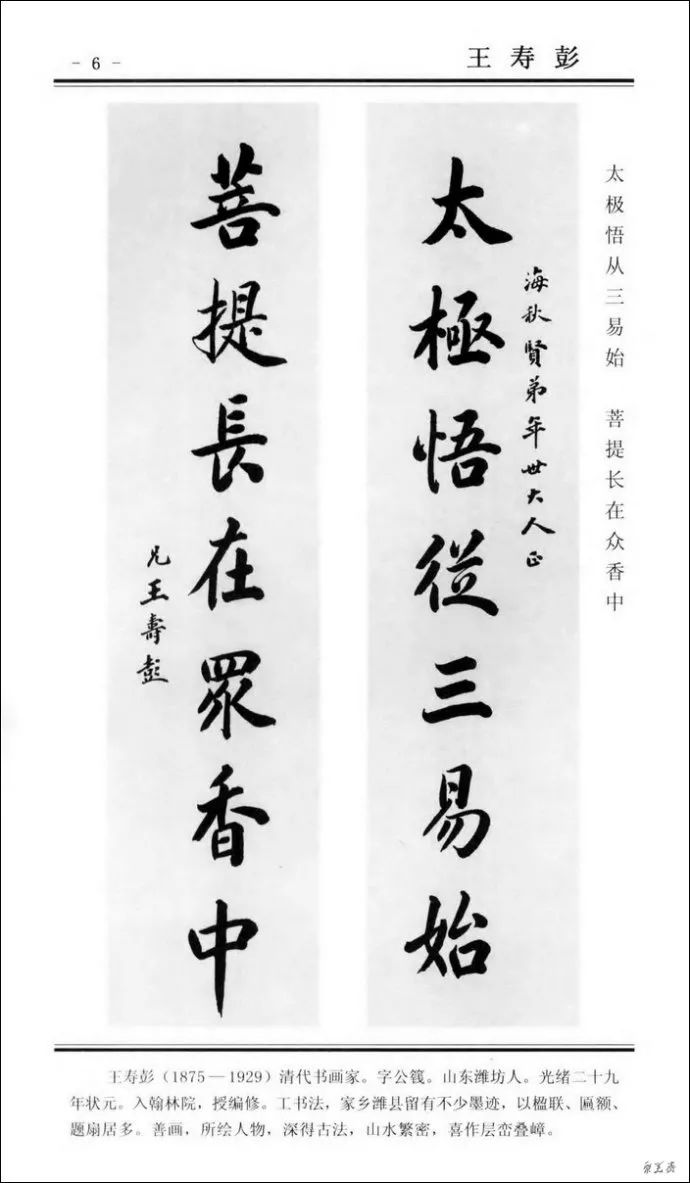 - 6 -
王寿彭
太极悟从三易始 菩提长在众香中
海秋賢弟年世大人正
太極悟從三易始
菩提長在眾香中
兄王壽彭
王寿彭（1875—1929）清代书画家。字公篯。山东潍坊人。光绪二十九
年状元。入翰林院，授编修。工书法，家乡潍县留有不少墨迹，以楹联、匾额、
题扇居多。善画，所绘人物，深得古法，山水繁密，喜作层峦叠嶂。